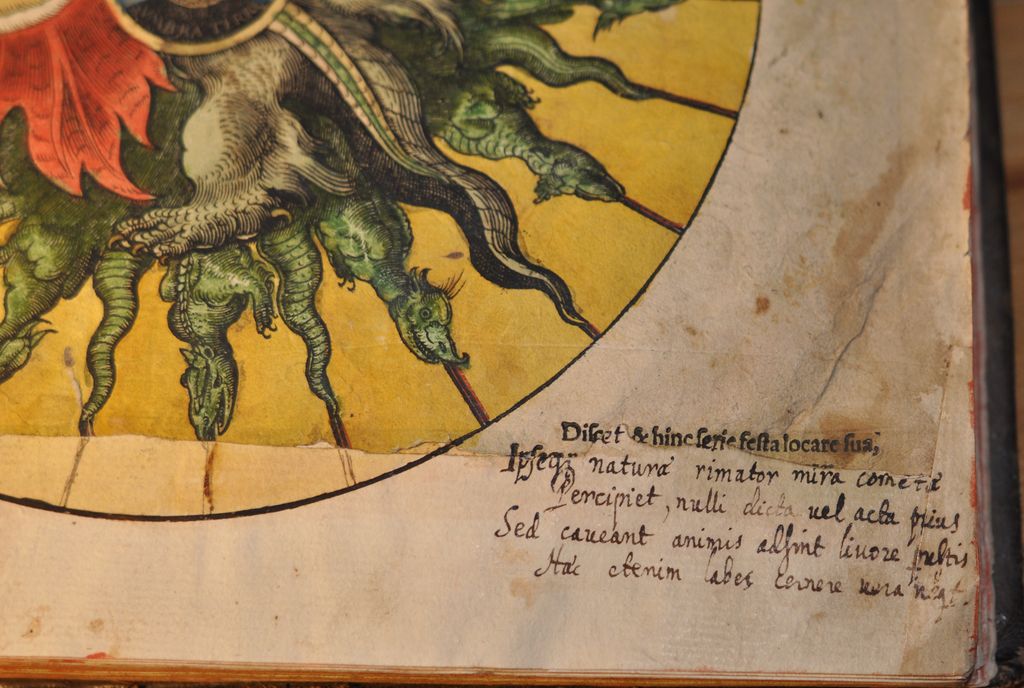 BRA TERR
Discet & hinc serie festa locare sua,
Ipseqꝫ naturæ rimator mira cometæ
Percipiet, nulli dicta uel acta prius
Sed caueant animis adsint liuore
Hæc etenim labes cernere uera neqt.